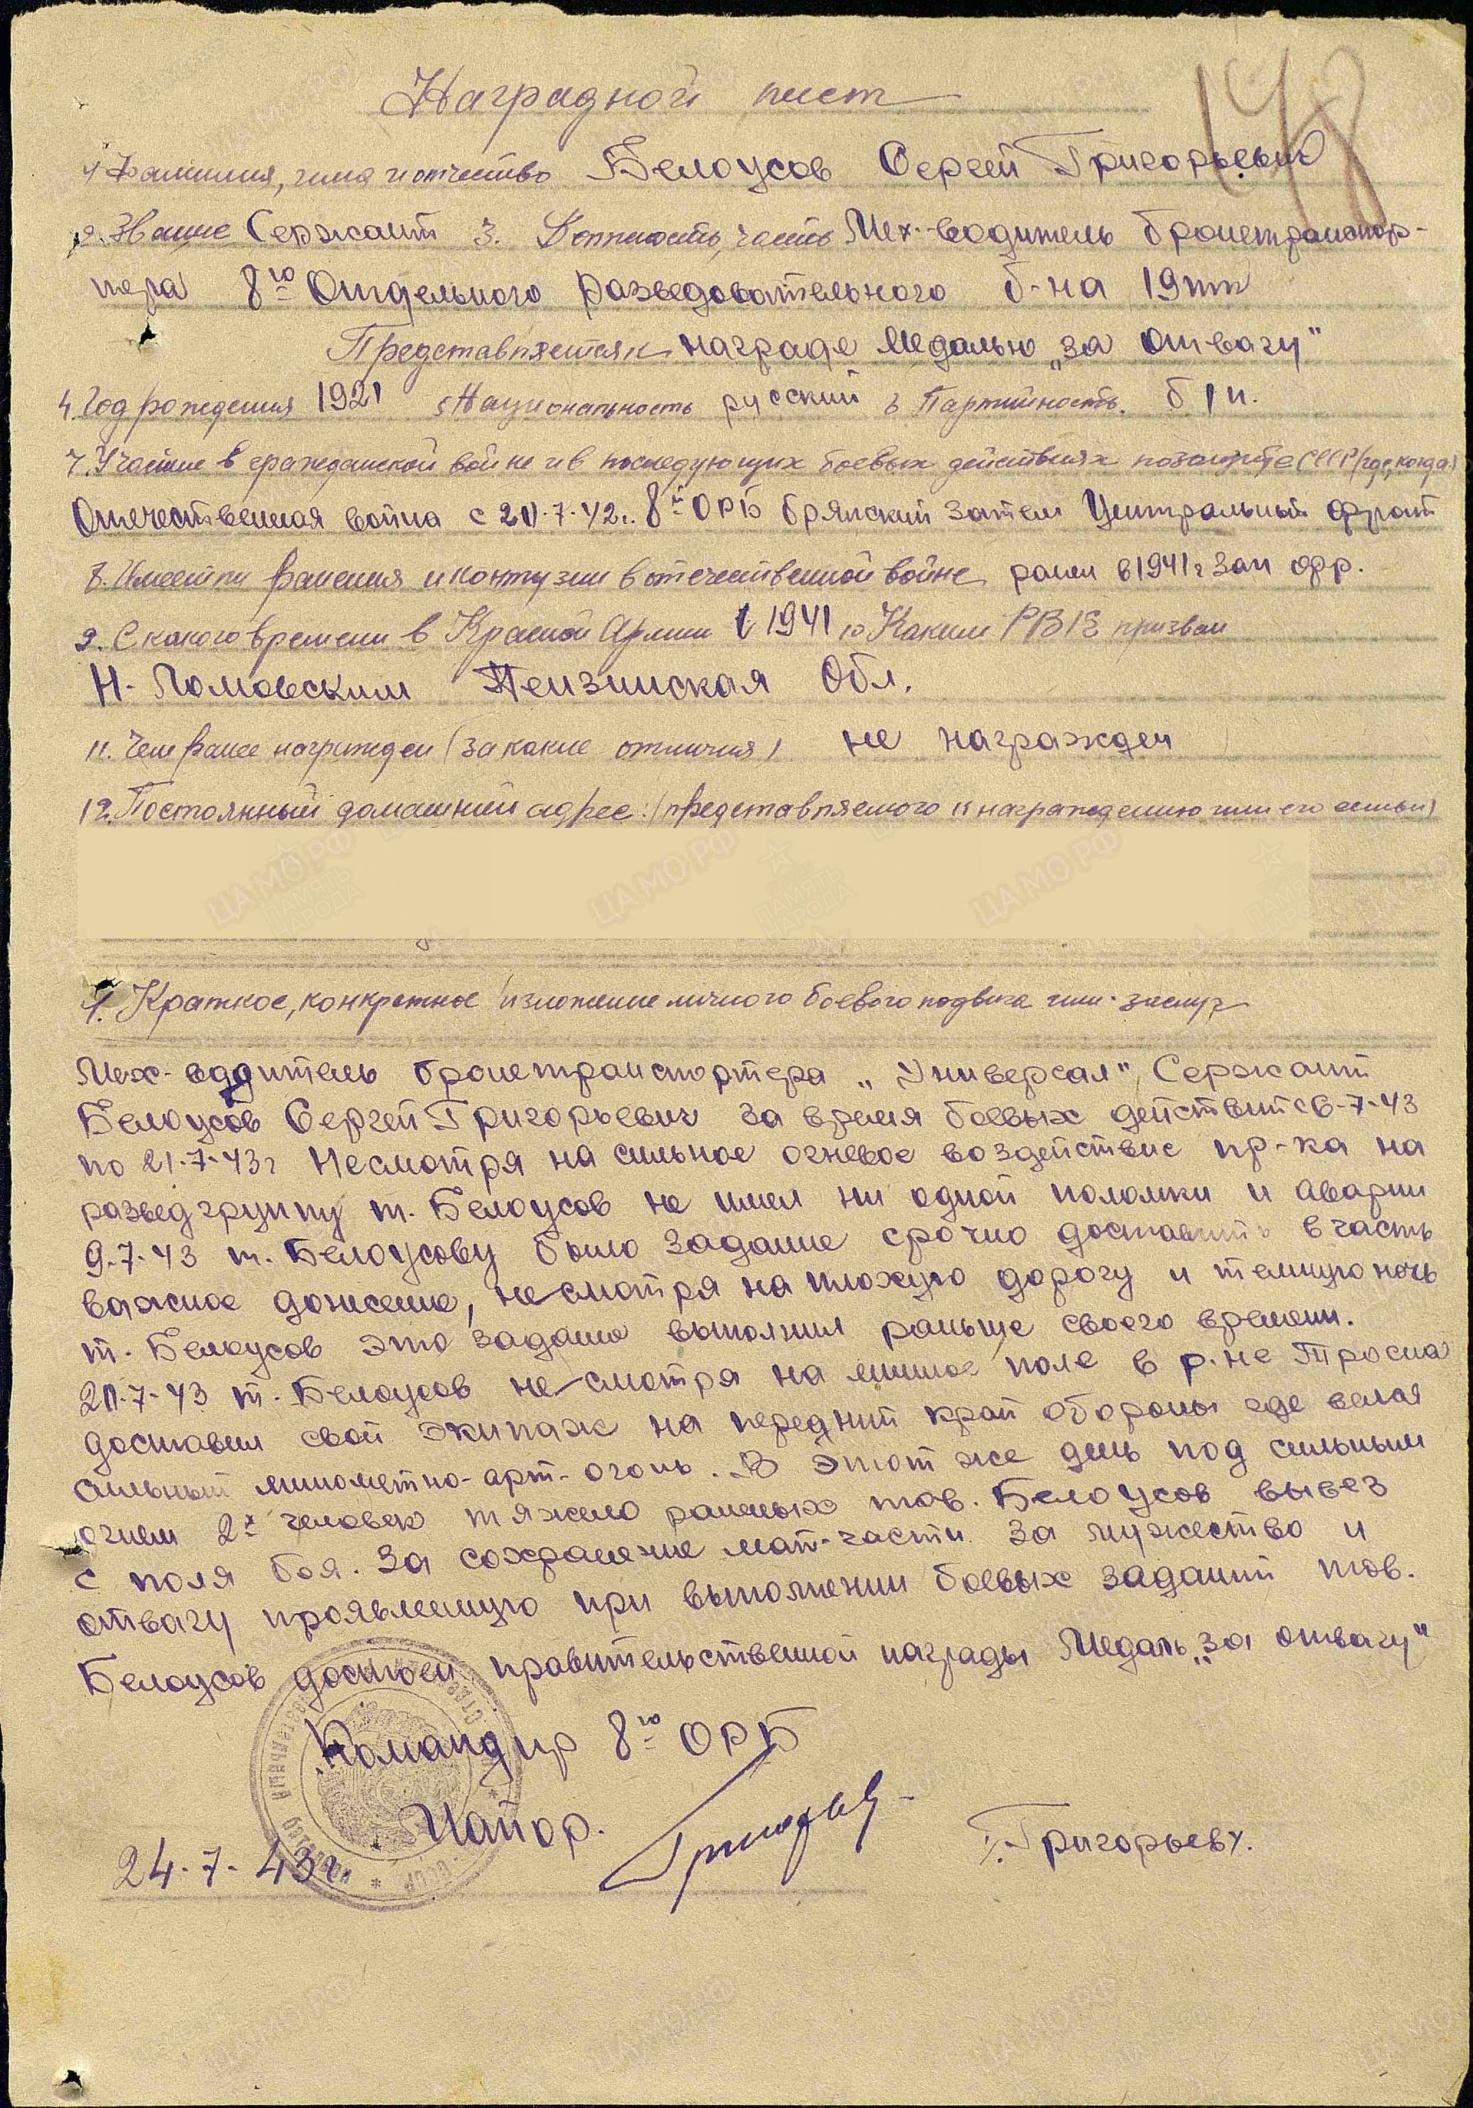 148
Наградной лист
1. Фамилия, имя и отчество Белоусов Сергей Григорьевич
2. Звание Сержант 3. Должность, часть Мех.-водитель бронетранспор-
тера 8го Отдельного разведовательного б-на 19тк
Представляется к награде Медалью „за отвагу"
4. Год рождения 1921 5 Национальность русский 6 Партийность. б/п.
7. Участие в гражданской войне и в последующих боевых действиях по защите СССР (где, когда)
Отечественная война с 20.7.42г. 8й ОРБ Брянский затем Центральный фронт
8. Имеет ли ранения и контузии в отечественной войне ранен в 1941г Зап фр.
9. С какого времени в Красной Армии с 1941 10 Каким РВК призван
Н-Ломовским Пензинская Обл.
11. Чем ранее награжден (за какие отличия) не награжден
12. Постоянный домашний адрес: (представляемого к награждению или его семьи)
1. Краткое, конкретное изложение личного боевого подвига или заслуг
Мех-водитель бронетранспортера „Универсал", Сержант
Белоусов Сергей Григорьевич за время боевых действий с 6-7-43
по 21-7-43г Несмотря на сильное огневое воздействие пр-ка на
разведгруппу т. Белоусов не имел ни одной поломки и аварии
9.7-43 т. Белоусову было задание срочно доставить в часть
важное донесение, не смотря на плохую дорогу и темную ночь
т. Белоусов это задание выполнил раньше своего времени.
20.7-43 т. Белоусов не смотря на минное поле в р-не Тросна
доставил свой экипаж на передний край обороны где велся
сильный минометно-арт-огонь. В этот же день под сильным
огнем 2х человек тяжело раненых тов. Белоусов вывез
с поля боя. За сохранение мат-части за мужество и
отвагу проявленную при выполнении боевых заданий тов.
Белоусов достоен правительственной награды Медаль „за отвагу"
Командир 8го ОРБ
Майор. Григорьев
/Григорьев/.
24-7-43г.